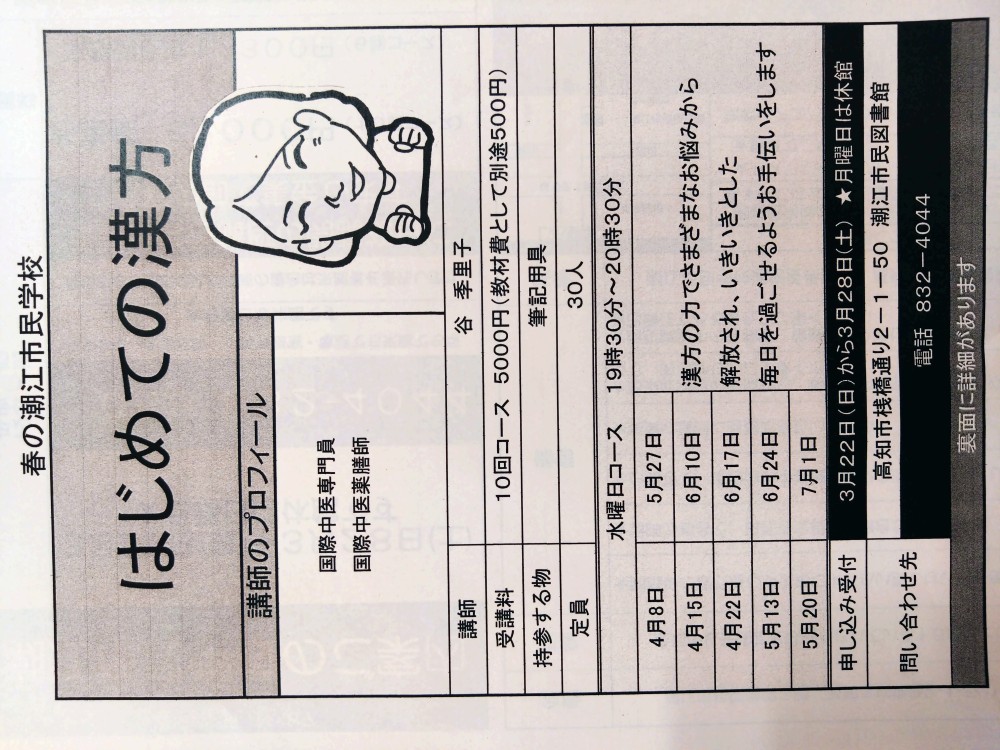 春の潮江市民学校
はじめての漢方
講師のプロフィール
国際中医専門員
国際中医薬膳師
講師 谷 季里子
受講料 10回コース 5000円(教材費として別途500円)
持参する物 筆記用具
定員 30人
水曜日コース 19時30分～20時30分
4月8日 5月27日
4月15日 6月10日
4月22日 6月17日
5月13日 6月24日
5月20日 7月1日
漢方の力でさまざまなお悩みから
解放され、いきいきとした
毎日を過ごせるようお手伝いをします
申し込み受付 3月22日(日)から3月28日(土) ★月曜日は休館
問い合わせ先 高知市桟橋通り2－1－50 潮江市民図書館
電話 832－4044
裏面に詳細があります